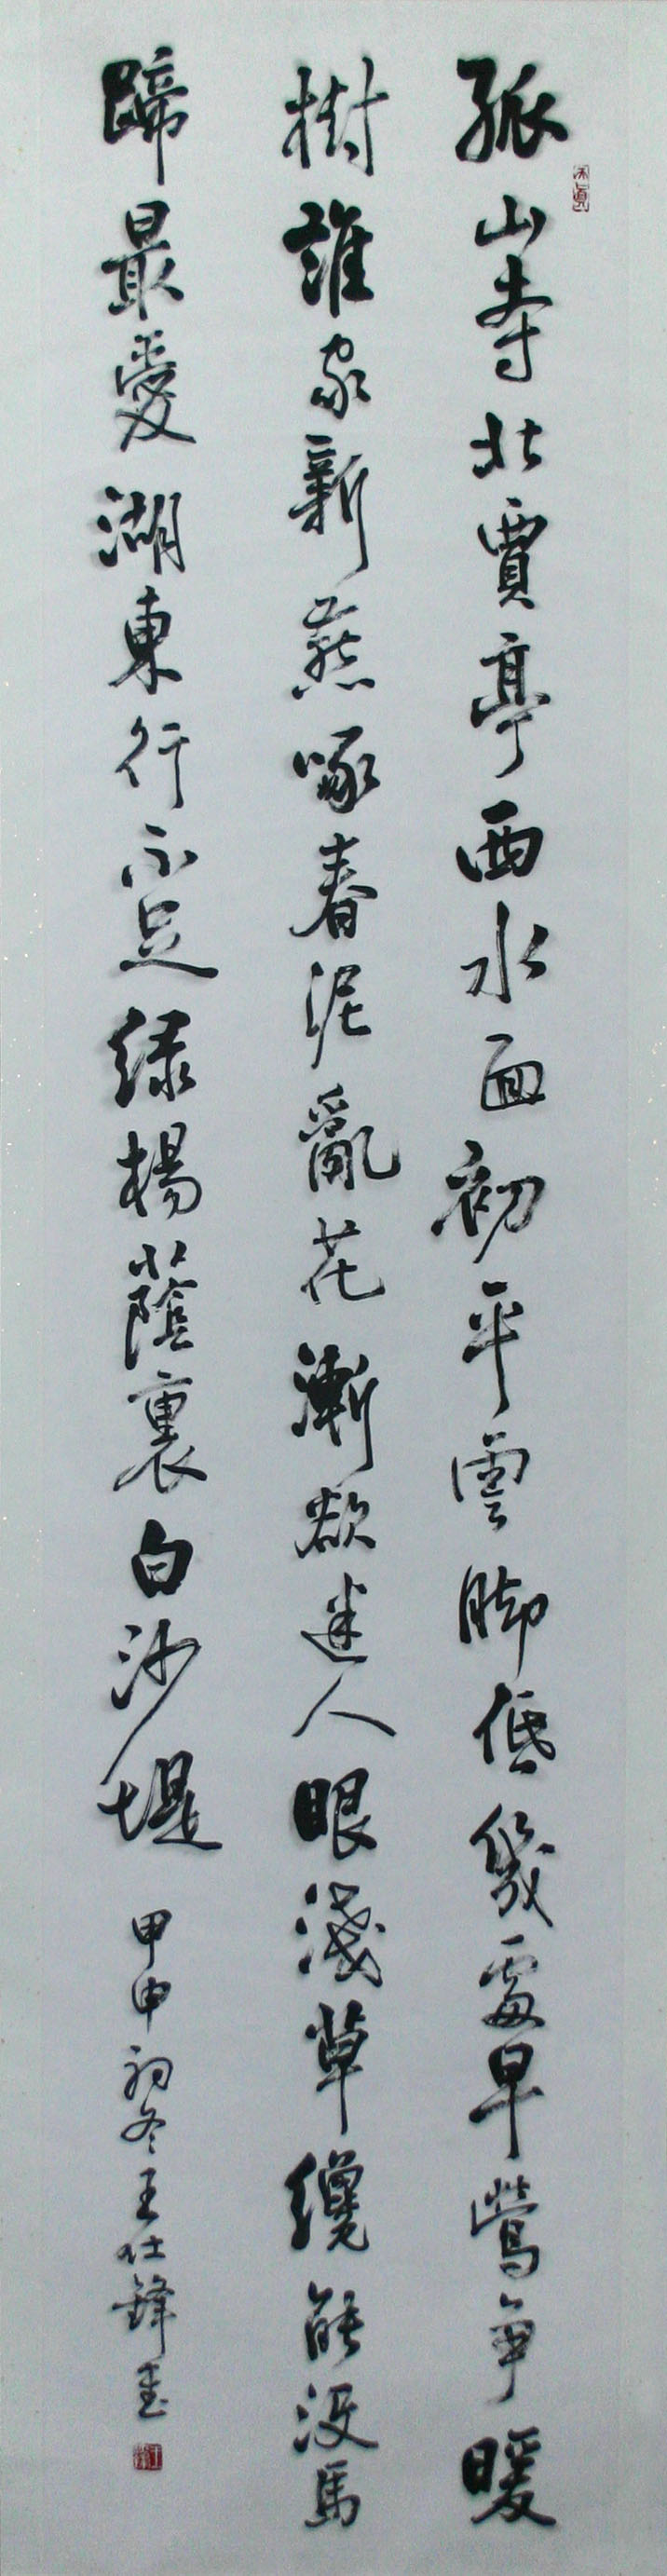 孤山寺北賈亭西水面初平雲腳低幾處早鶯爭暖
樹誰家新燕啄春泥亂花漸欲迷人眼淺草纔能沒馬
蹄最愛湖東行不足綠楊蔭裏白沙堤
甲申初冬王仕鋒書